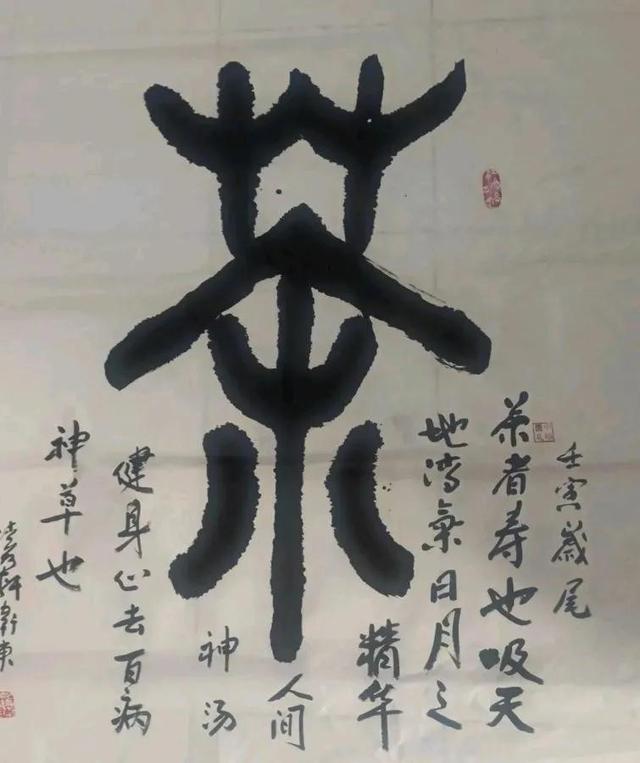 茶
壬寅歲尾
茶者寿也吸天
地氣日月之
精华
人间
神汤
健身心去百病
神草也